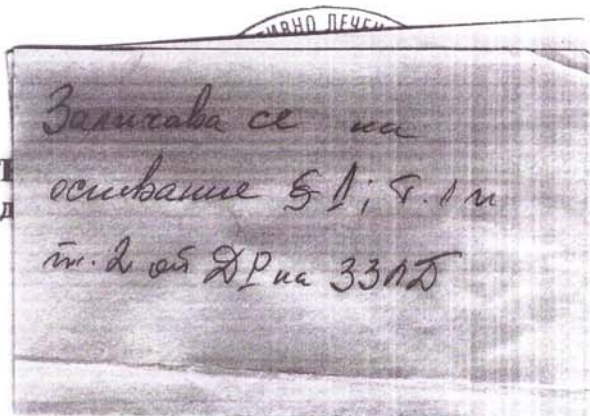 ИВНО ЛЕЧЕН
Заличава се на
основание § 1; т. 1 и
т. 2 от ДР на ЗЗЛД